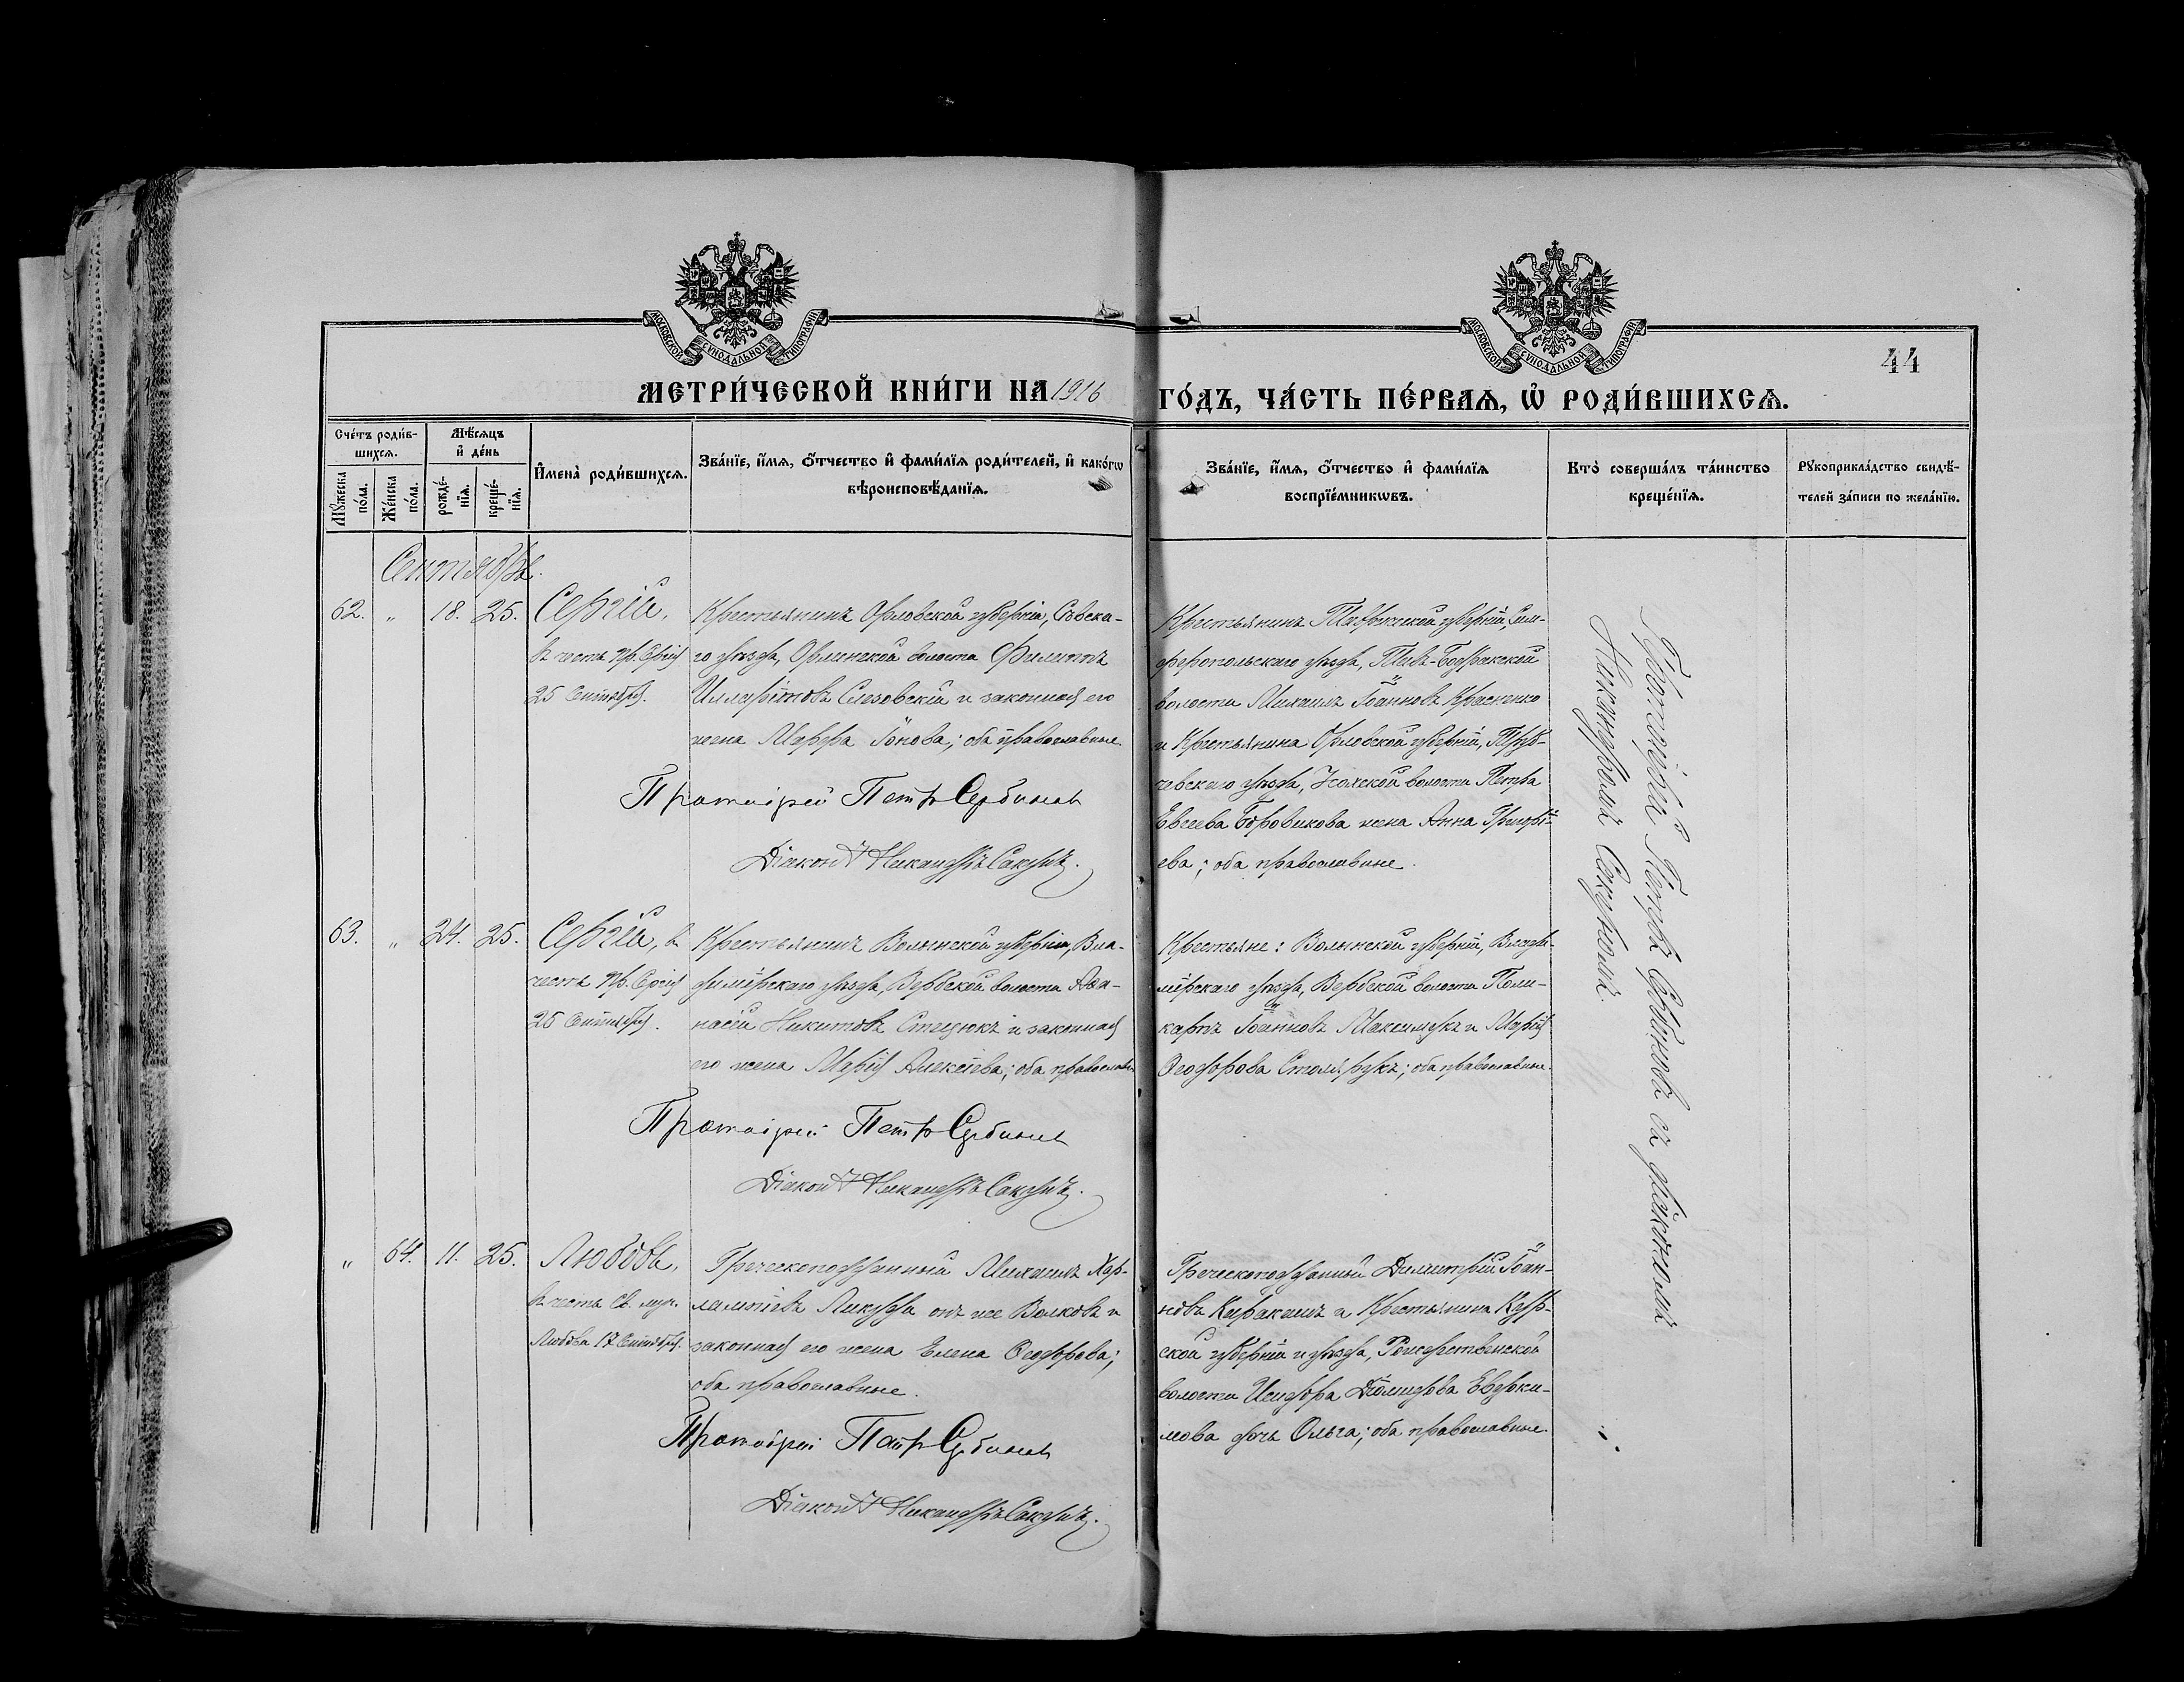 МОСКОВСКОЙ СѴНОДАЛЬНОЙ ТИПОГРАФІИ
МОСКОВСКОЙ СѴНОДАЛЬНОЙ ТИПОГРАФІИ
44
МЕТРИ́ЧЕСКОЙ КНИ́ГИ НА 1916 ГО́ДЪ, ЧА́СТЬ ПЕ́РВАѦ, Ѡ҆ РОДИ́ВШИХСѦ.
Сче́тъ роди́в-
шихсѧ.
Мꙋ́жеска по́ла.
Же́нска по́ла.
Мѣ́сѧцъ и҆ де́нь
рожде́-нїѧ.
креще́-нїѧ.
И҆мена̀ роди́вшихсѧ.
Зва́нїе, и҆́мѧ, ѻ҆́тчество и҆ фами́лїѧ роди́телей, и҆ како́гѡ
вѣроисповѣ́данїѧ.
Зва́нїе, и҆́мѧ, ѻ҆́тчество и҆ фами́лїѧ
воспрїе́мникѡвъ.
Кто̀ соверша́лъ та́инство
креще́нїѧ.
Рꙋкоприкла́дство свидѣ́-
телей за́писи по жела́нїю.
Сентябрь.
62. „ 18. 25. Сергій,
въ честь Пр. Сергія
25 Сентября.
Крестьянинъ Орловской губерніи, Сѣвска-
го уѣзда, Орлинской волости Филиппъ
Илларіоновъ Слезовскій и законная его
жена Марфа Іонова; оба православные.
Протоіерей Петръ Сербиновъ
Діаконъ Никандръ Сакунъ.
Крестьянинъ Таврической губерніи, Сим-
феропольскаго уѣзда, Тавъ-Бодракской
волости Михаилъ Іоанновъ Красненко
и Крестьянина Орловской губерніи, Труб-
чевскаго уѣзда, волости Петра
Евсеева Боровикова жена Анна Григорі-
ева; оба православные.
63. „ 24. 25. Сергій, въ
честь Пр. Сергія
25 Сентября.
Крестьянинъ Волынской губерніи, Вла-
димірскаго уѣзда, Вербской волости Аѳа-
насій Никитовъ Стецюкъ и законная
его жена Марія Алексіева; оба православные
Протоіерей Петръ Сербиновъ
Діаконъ Никандръ Сакунъ.
Крестьяне: Волынской губерніи, Влади-
мірскаго уѣзда, Вербской волости Поли-
карпъ Іоанновъ Максимукъ и Марія
Ѳеодорова Столярукъ; оба православные.
„ 64. 11. 25. Любовь,
въ честь Св. муч.
Любови 17 Сентября.
Греческоподданный Михаилъ Хар-
лампіевъ Ликуди онъ же Волковъ и
законная его жена Елена Ѳеодорова;
оба православные.
Протоіерей Петръ Сербиновъ
Діаконъ Никандръ Сакунъ.
Греческоподданный Димитрій Іоан-
новъ Каракашъ и Крестьянина Кур-
ской губерніи и уѣзда, Рождественской
волости Исидора Діомидова Евдоки-
мова дочь Ольга; оба православные.
Протоіерей Петръ Сербиновъ съ діакономъ
Никандромъ Сакуномъ